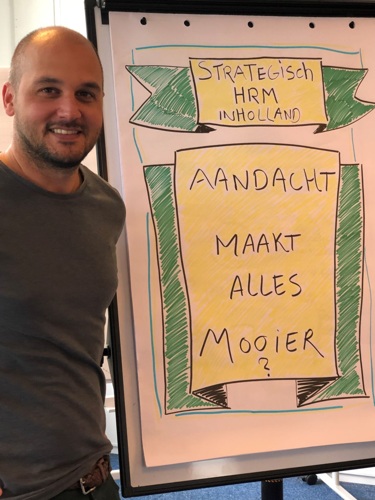 STRATEGISCH
HRM
INHOLLAND
AANDACHT
MAAKT
ALLES
MOOIER
?